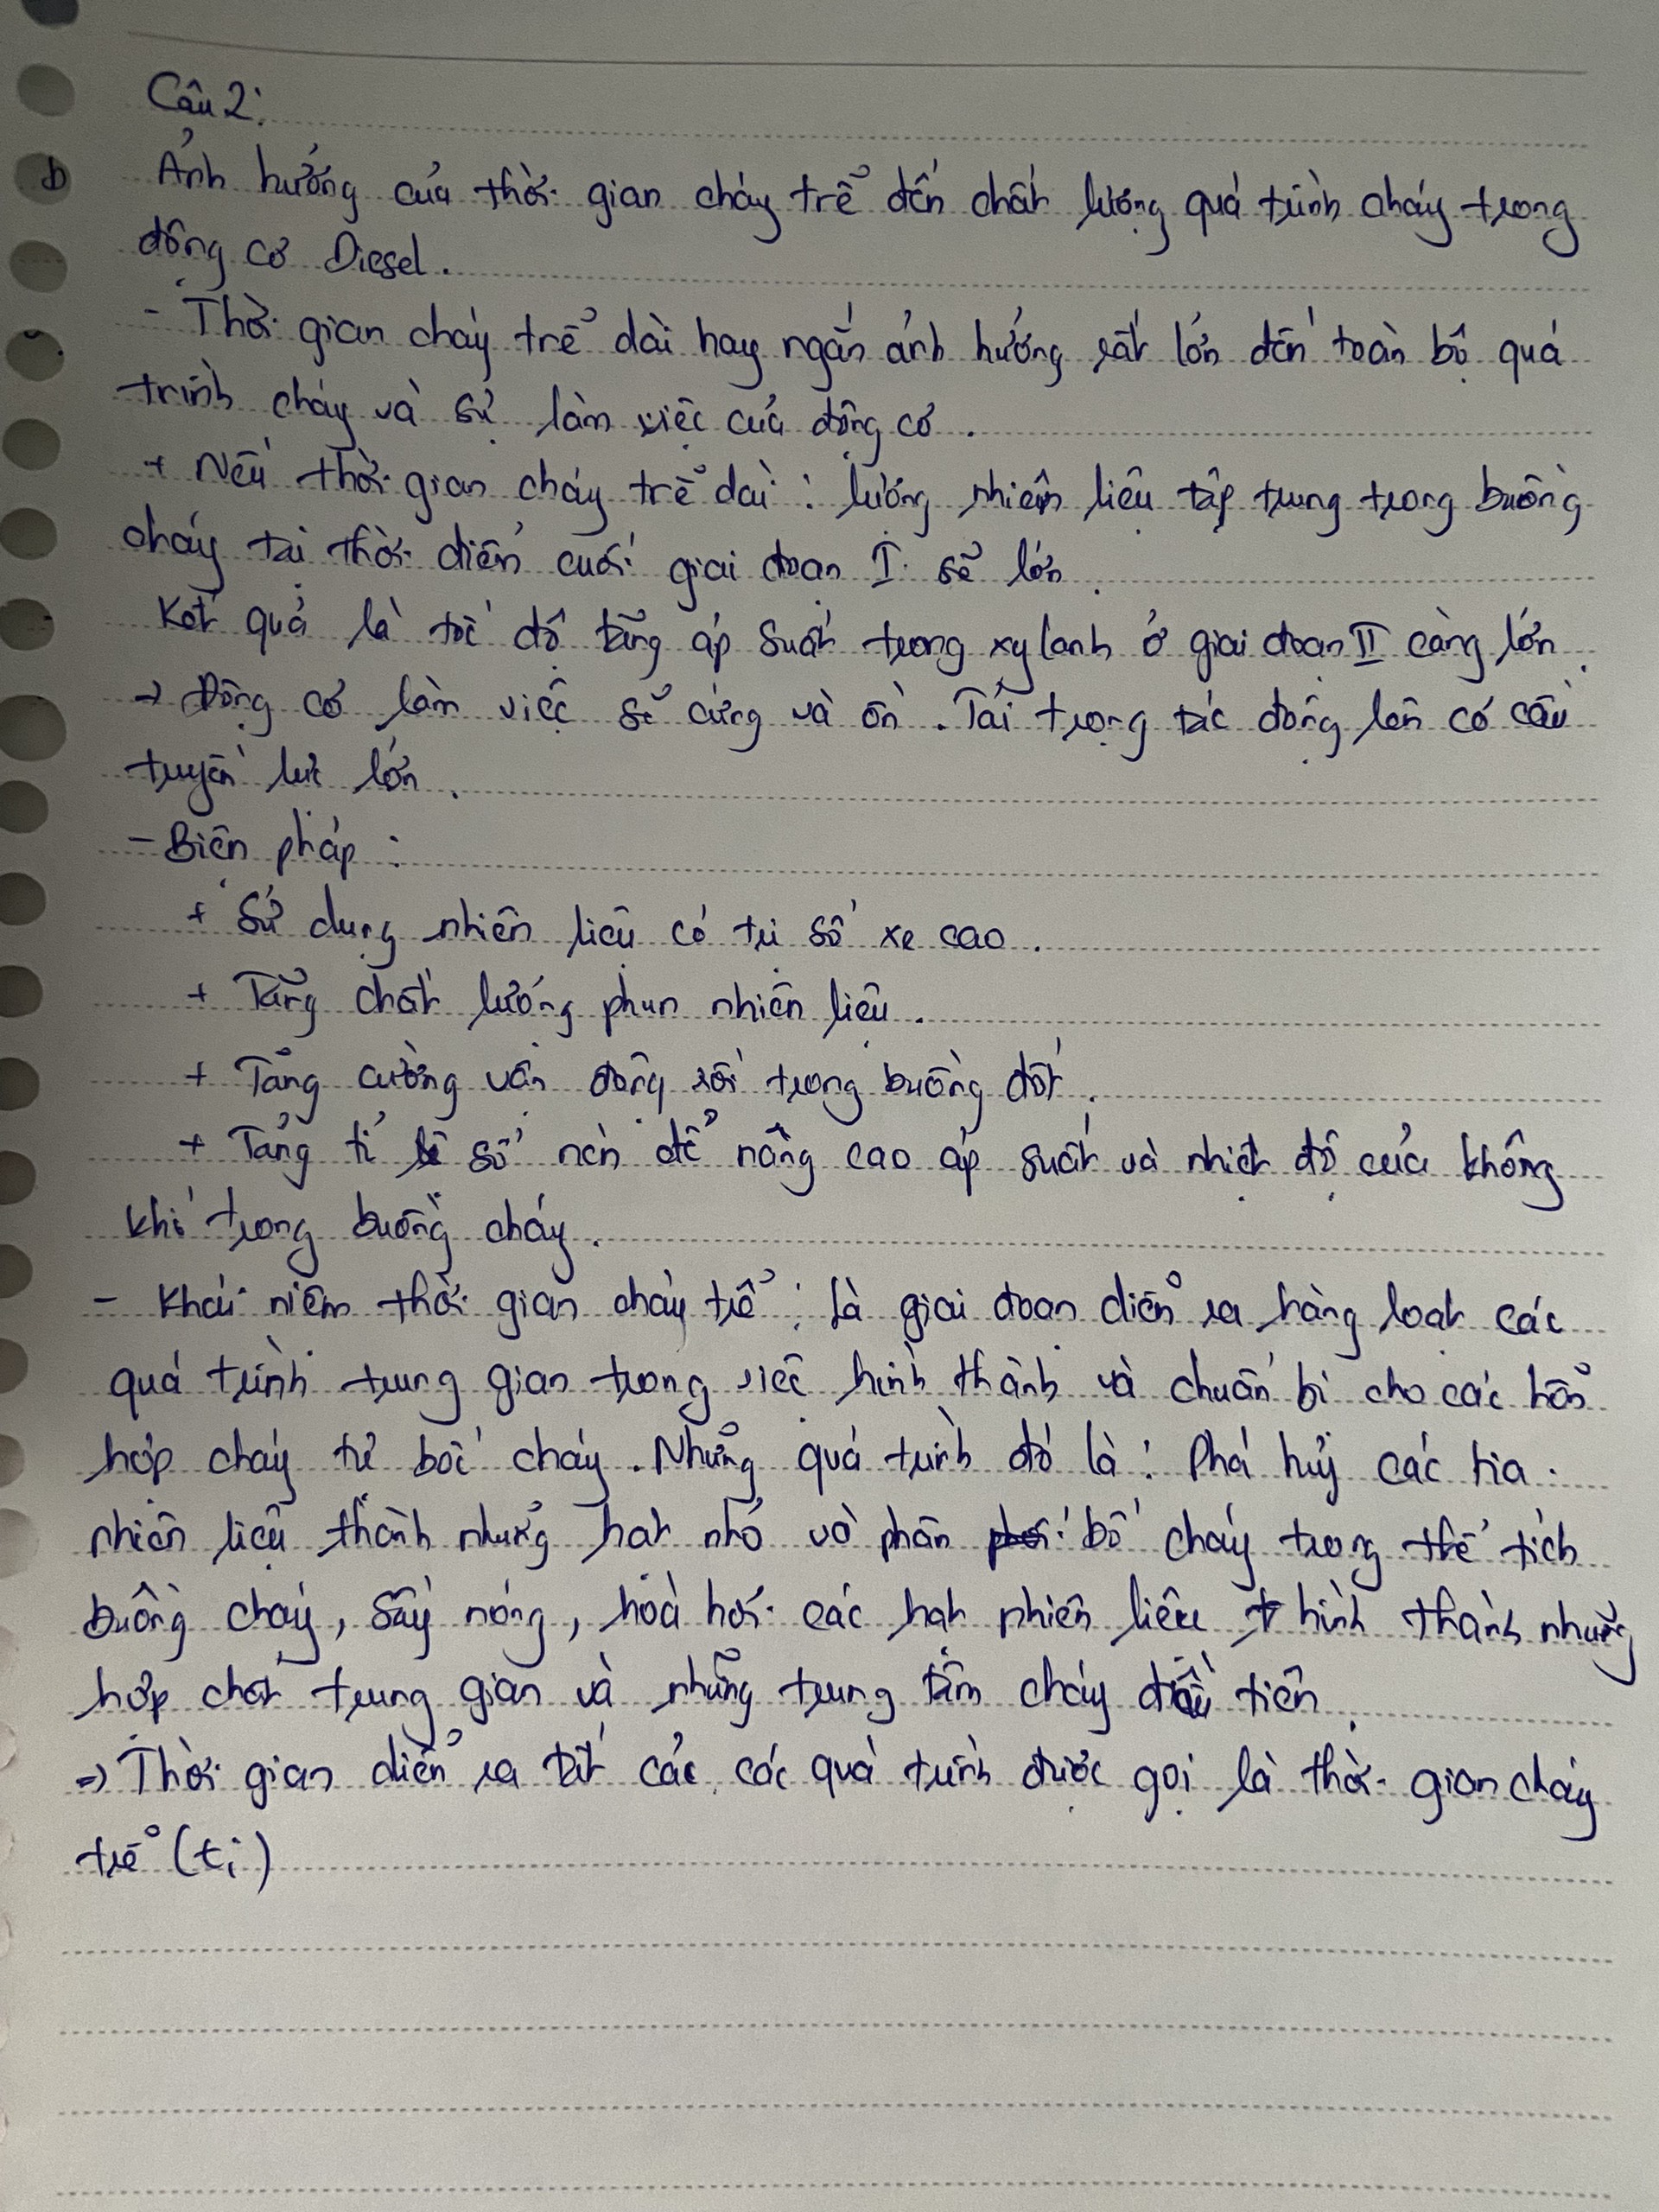 Câu 2:
b Ảnh hưởng của thời gian cháy trễ đến chất lượng quá trình cháy trong
động cơ Diesel.
- Thời gian cháy trễ dài hay ngắn ảnh hưởng rất lớn đến toàn bộ quá
trình cháy và sự làm việc của động cơ.
+ Nếu thời gian cháy trễ dài: lượng nhiên liệu tập trung trong buồng
cháy tại thời điểm cuối giai đoạn I sẽ lớn.
Kết quả là tốc độ tăng áp suất trong xy lanh ở giai đoạn II càng lớn.
→ Động cơ làm việc sẽ cứng và ồn. Tải trọng tác động lên cơ cấu
truyền lực lớn.
- Biện pháp:
+ Sử dụng nhiên liệu có trị số xe cao.
+ Tăng chất lượng phun nhiên liệu.
+ Tăng cường vận động rối trong buồng đốt.
+ Tăng tỉ số nén để nâng cao áp suất và nhiệt độ của không
khí trong buồng cháy.
- Khái niệm thời gian cháy trễ: là giai đoạn diễn ra hàng loạt các
quá trình trung gian trong việc hình thành và chuẩn bị cho các hỗn
hợp cháy tự bốc cháy. Những quá trình đó là: Phá hủy các tia
nhiên liệu thành những hạt nhỏ và phân bố cháy trong thể tích
buồng cháy, sấy nóng, hoá hơi các hạt nhiên liệu hình thành những
hợp chất trung gian và những trung tâm cháy đầu tiên.
=> Thời gian diễn ra tất cả các quá trình được gọi là thời gian cháy
trễ (ti)